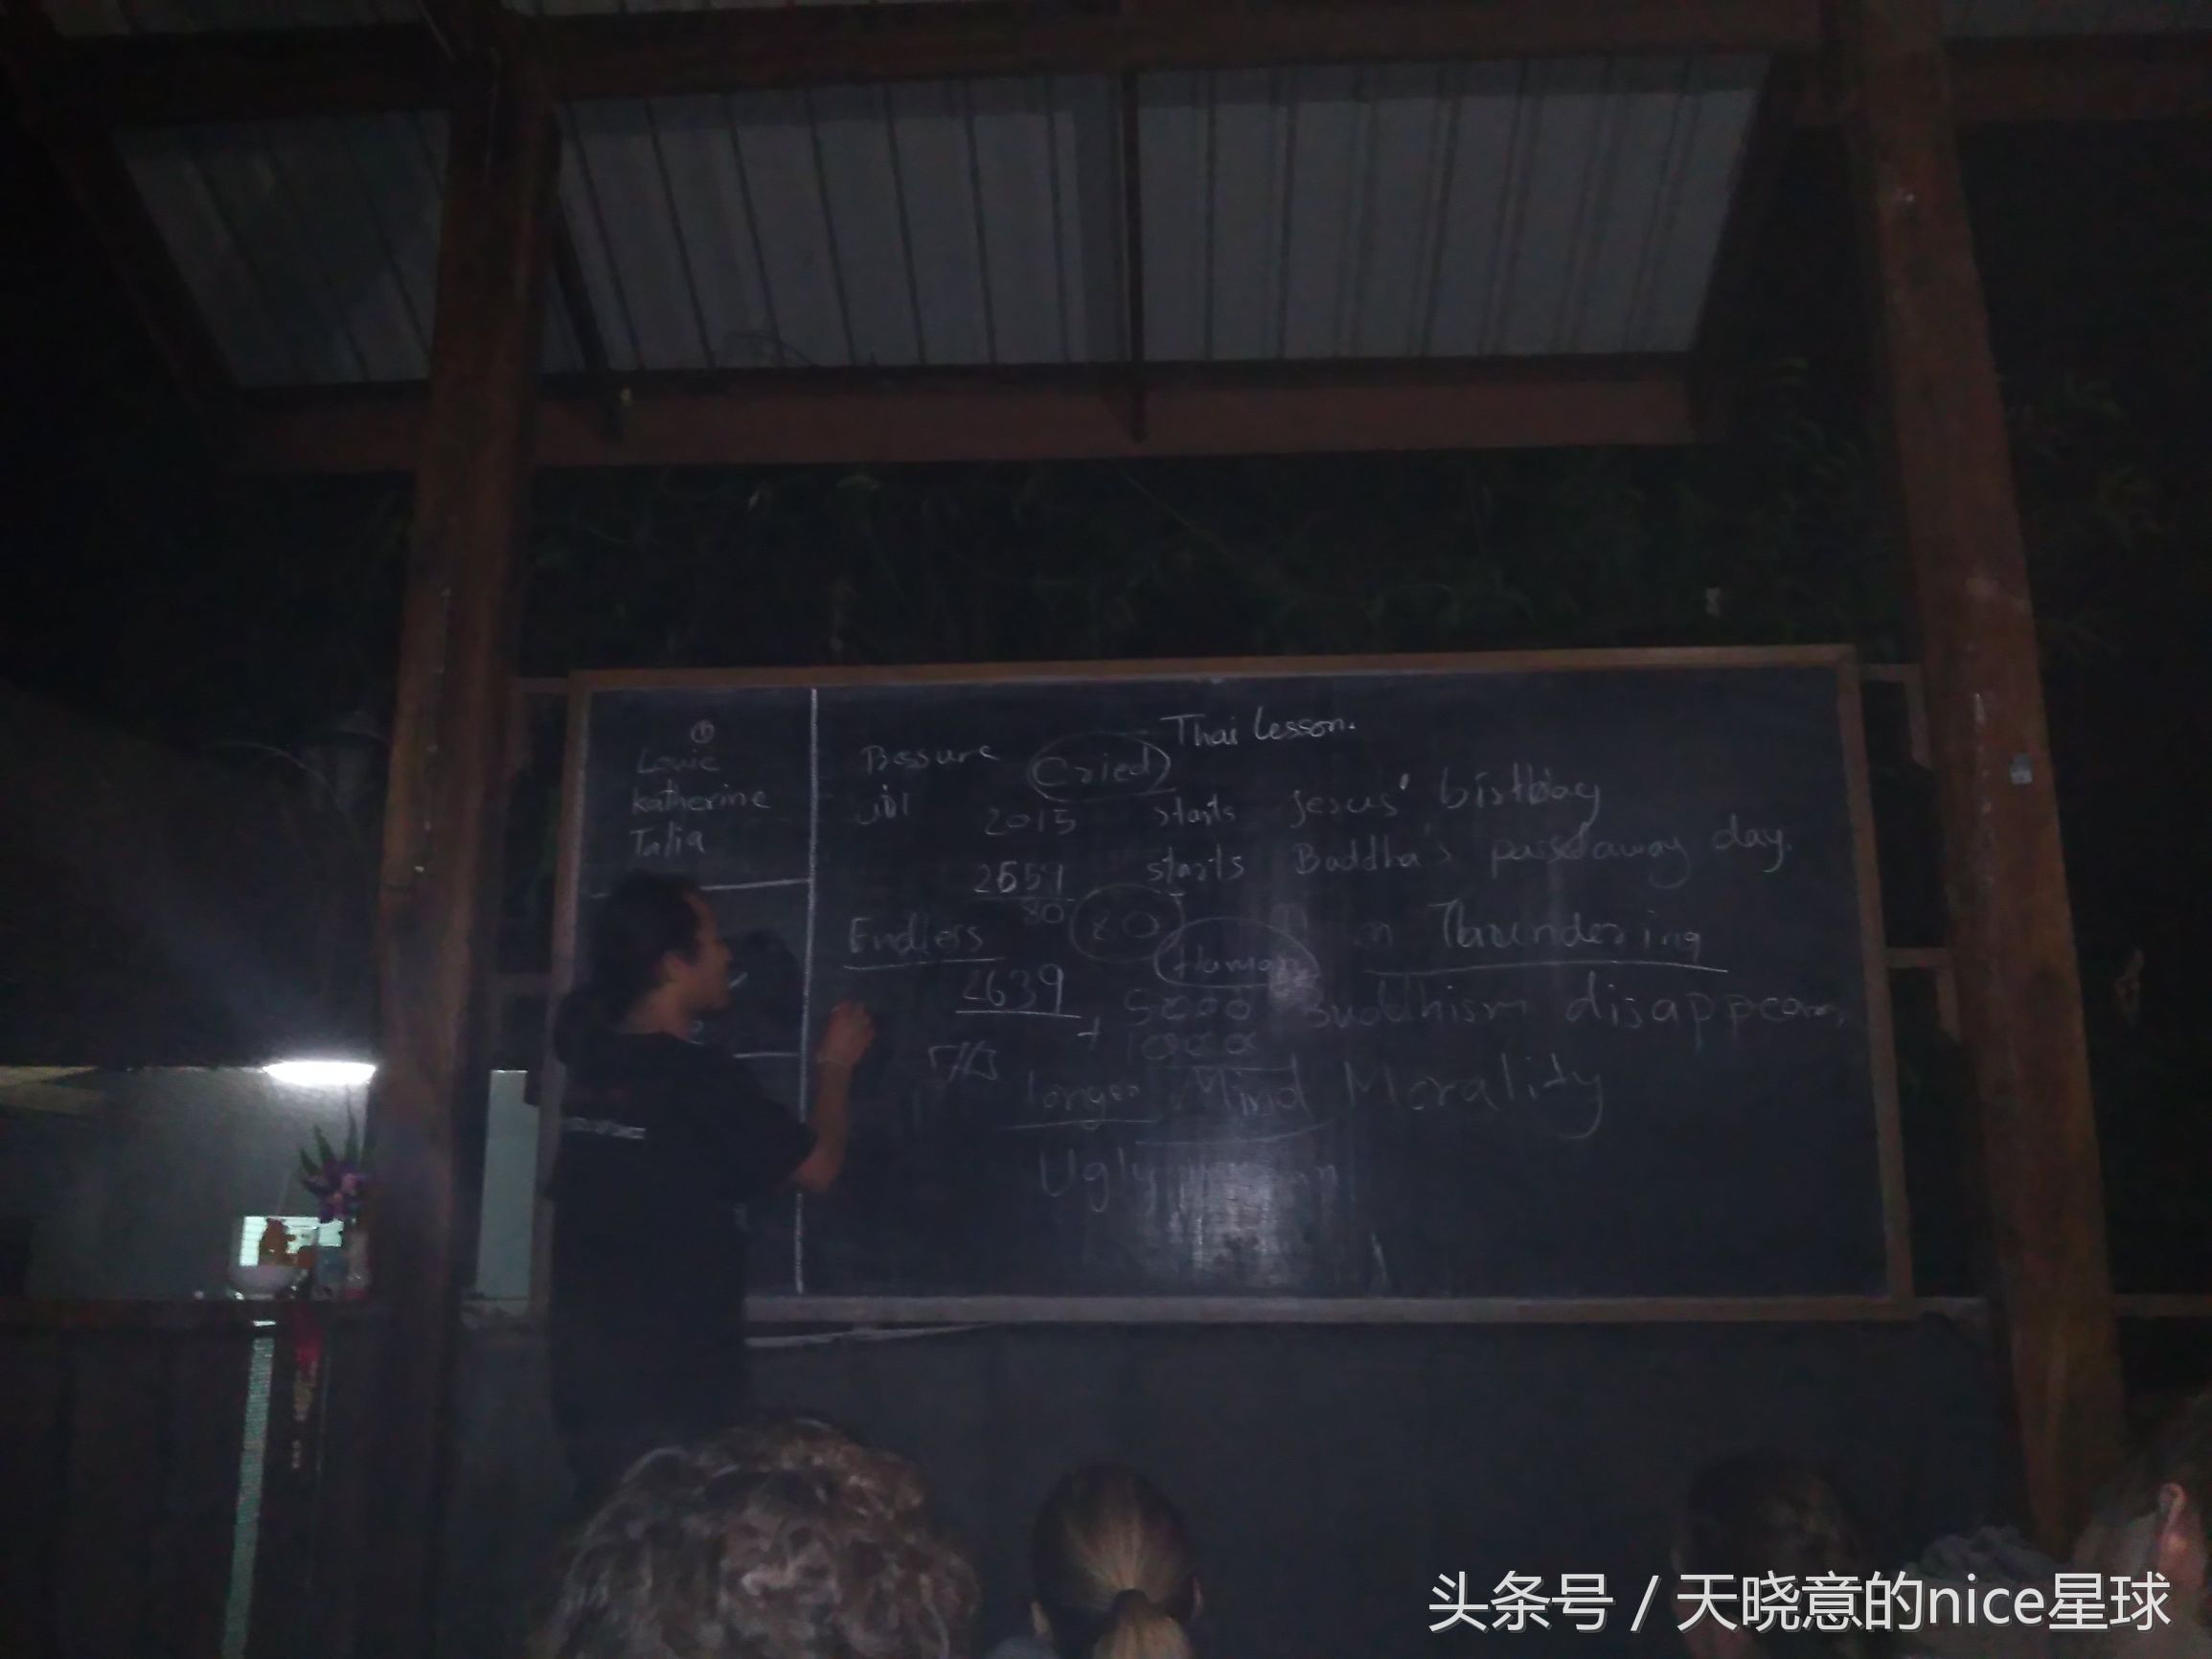 Louie
Katherine
Talia
Thai Lesson.
Cried
2015 starts Jesus' birthday
starts Buddha's passaway day.
80
80
Endless Human Thundering
2639
5000 Buddhism disappear
+
longer Mind Morality
Ugly
头条号 / 天晓意的nice星球